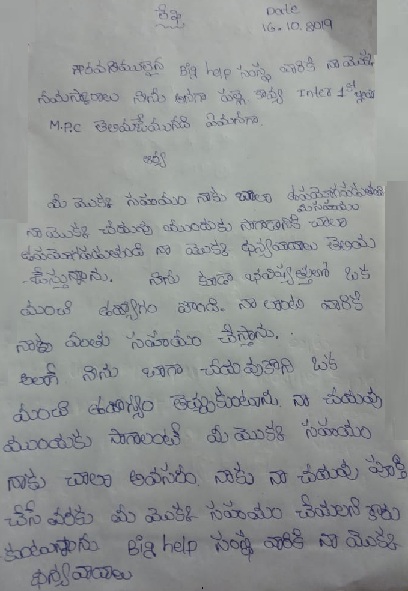 Date
16.10.2019
గౌరవనీయులైన Big help సంస్థ వారికి నా యొక్క
నమస్కారాలు నేను అనగా కావ్య Inter 1st
M.P.C తెలియజేయునది ఏమనగా.
ఆర్య
మీ యొక్క సహాయం నాకు చాలా ఉపయోగపడుతుంది
మీ సహాయం
నా యొక్క చదువు ముందుకు సాగడానికి చాలా
ఉపయోగపడుతుంది నా యొక్క ధన్యవాదాలు తెలియ
చేస్తున్నాను. నేను కూడా భవిష్యత్తులో ఒక
మంచి ఉద్యోగం పొంది. నా లాంటి వారికి
నాకు వంతు సహాయం చేస్తాను.
అలాగే నేను బాగా చదువుకొని ఒక
మంచి ఉద్యోగం తెచ్చుకుంటాను. నా చదువు
ముందుకు సాగాలంటే మీ యొక్క సహాయం
నాకు చాలా అవసరం. నాకు నా చదువు పూర్తి
చేసే వరకు మీ యొక్క సహాయం చేయాలని కోరు
కుంటున్నాను Big help సంస్థ వారికి నా యొక్క
ధన్యవాదాలు